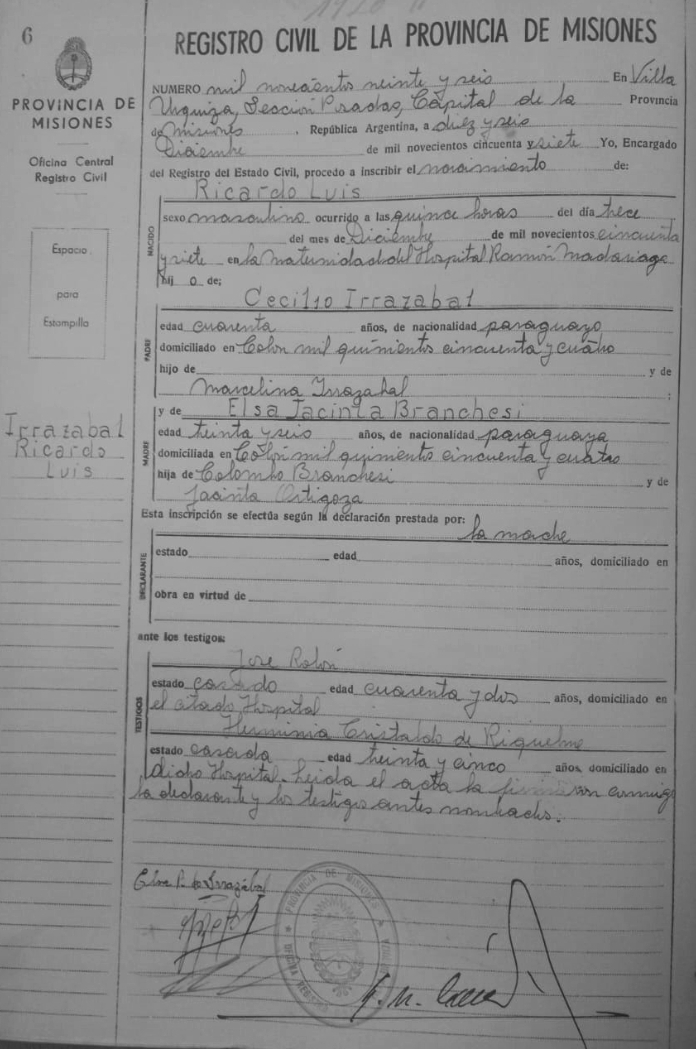 6
PROVINCIA DE
MISIONES
Oficina Central
Registro Civil
Espacio
para
Estampilla
Irrazabal
Ricardo
Luis
REGISTRO CIVIL DE LA PROVINCIA DE MISIONES
NUMERO mil novecientos veinte y seis En Villa
Urquiza, Sección Posadas, Capital de la Provincia
de Misiones, República Argentina, a diez y seis
Diciembre de mil novecientos cincuenta y siete Yo, Encargado
del Registro del Estado Civil, procedo a inscribir el nacimiento de:
Ricardo Luis
NACIDO
sexo masculino ocurrido a las quince horas del día trece
del mes de Diciembre de mil novecientos cincuenta
y siete en la Maternidad del Hospital Ramón Madariaga
hijo de:
Cecilio Irrazabal
PADRE
edad cuarenta años, de nacionalidad paraguayo
domiciliado en Colón mil quinientos cincuenta y cuatro
hijo de y de
Marcelina Irrazabal;
y de Elsa Jacinta Branchesi
MADRE
edad treinta y seis años, de nacionalidad paraguaya
domiciliada en Colón mil quinientos cincuenta y cuatro
hija de Colombo Branchesi y de
Jacinta Ortigoza
Esta inscripción se efectúa según la declaración prestada por:
la madre
DECLARANTE
estado edad años, domiciliado en
obra en virtud de
ante los testigos:
José Rolón
TESTIGOS
estado casado edad cuarenta y dos años, domiciliado en
el citado Hospital
Herminia Cristaldo de Riquelme
estado casada edad treinta y cinco años, domiciliado en
dicho Hospital. Leida el acta la firmaron conmigo
la declarante y los testigos antes nombrados.
Elsa B. de Irrazábal
PROVINCIA DE MISIONES